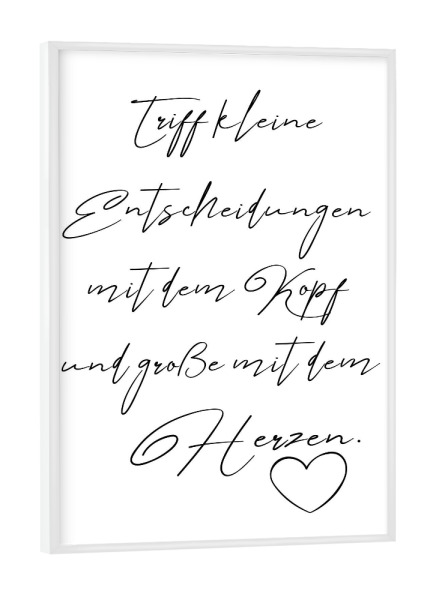 Triff kleine
Entscheidungen
mit dem Kopf
und große mit dem
Herzen.